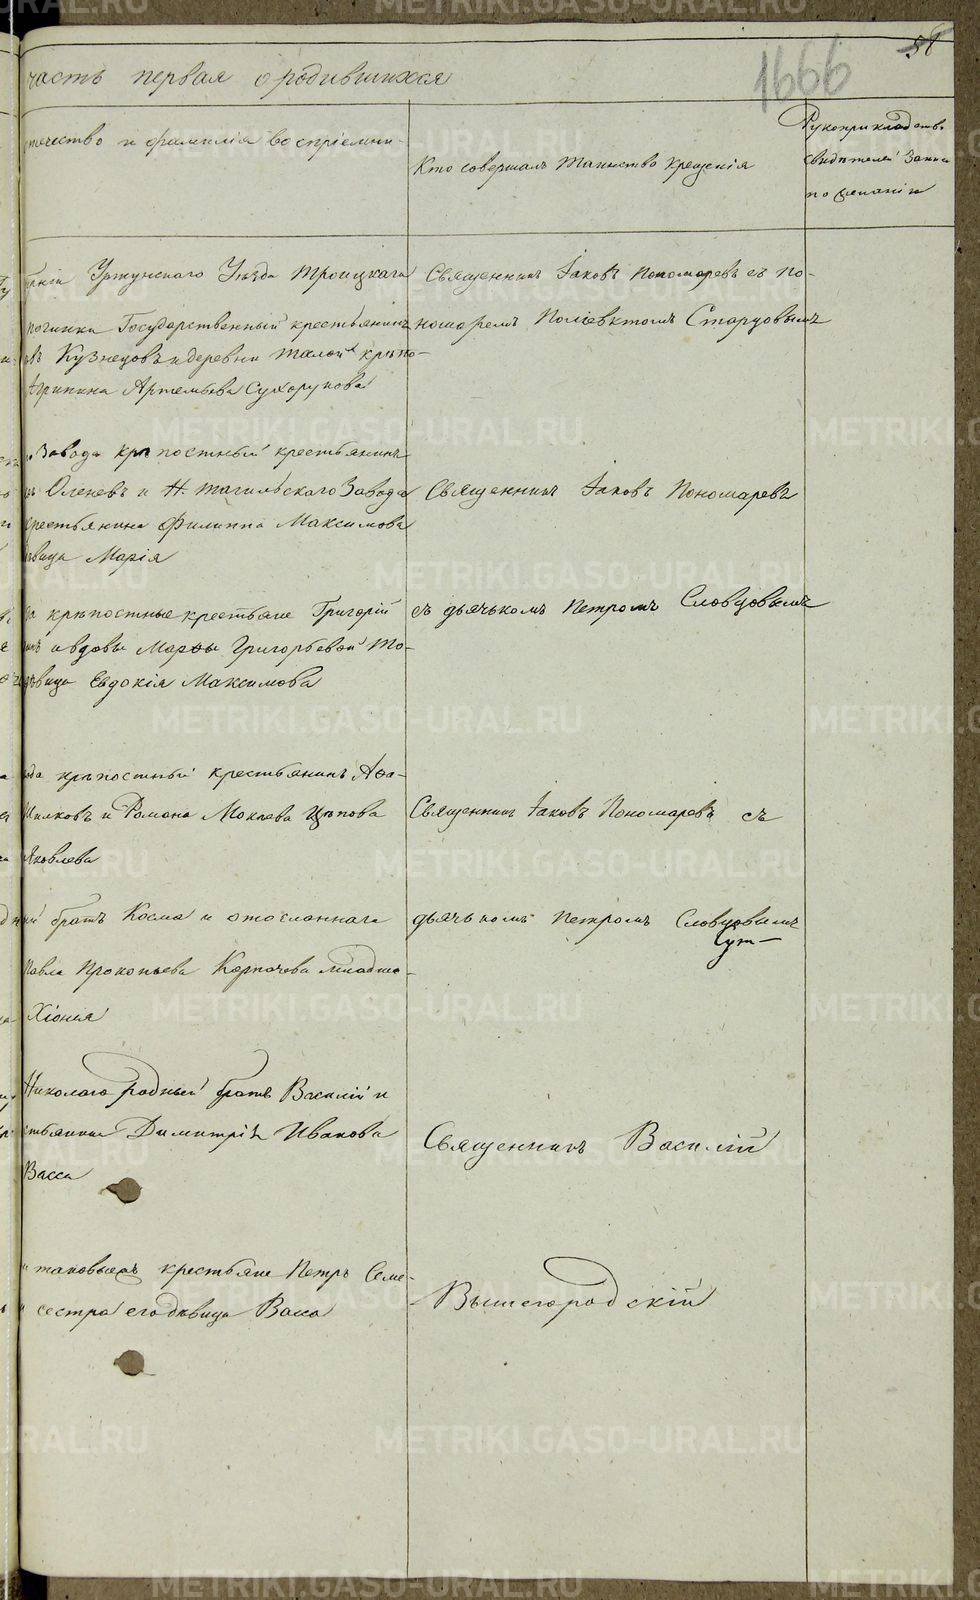 58
1666
часть первая о родившихся
отчество и фамилія воспріемни-
Кто совершалъ таинство крещенія
Рукоприкладство
свидѣтелей записи
по желанію
Уржумскаго Уѣзда Троицкаго
починка Государственный крестьянинъ
Кузнецовъ и деревни Талой крѣпо-
Агрипина Артемьева Сухорукова
Священникъ Іаковъ Пономаревъ съ по-
номаремъ Поліевктомъ Старцовымъ
Завода крѣпостный крестьянинъ
Оленевъ и Н. Тагильскаго Завода
крестьянина Филиппа Максимова
дѣвица Марія
Священникъ Іаковъ Пономаревъ
крѣпостные крестьяне Григорій
и вдовы Марѳы Григорьевой То-
дѣвица Евдокія Максимова
съ дьячькомъ Петромъ Словцовымъ
крѣпостный крестьянинъ Аѳа-
Шилковъ и Романа Мокѣева Цѣпова
Яковлева
Священникъ Іаковъ Пономаревъ съ
братъ Косма и отосланнаго
Павла Прокопьева Карпачева младша-
Хіонія
дьячькомъ Петромъ Словцовымъ
Николаго родный братъ Василій и
Димитрія Иванова
Васса
Священникъ Василій
таковыхъ крестьяне Петръ Семе-
и сестра его дѣвица Васса
Вышегородскій
METRIKI.GASO-URAL.RU